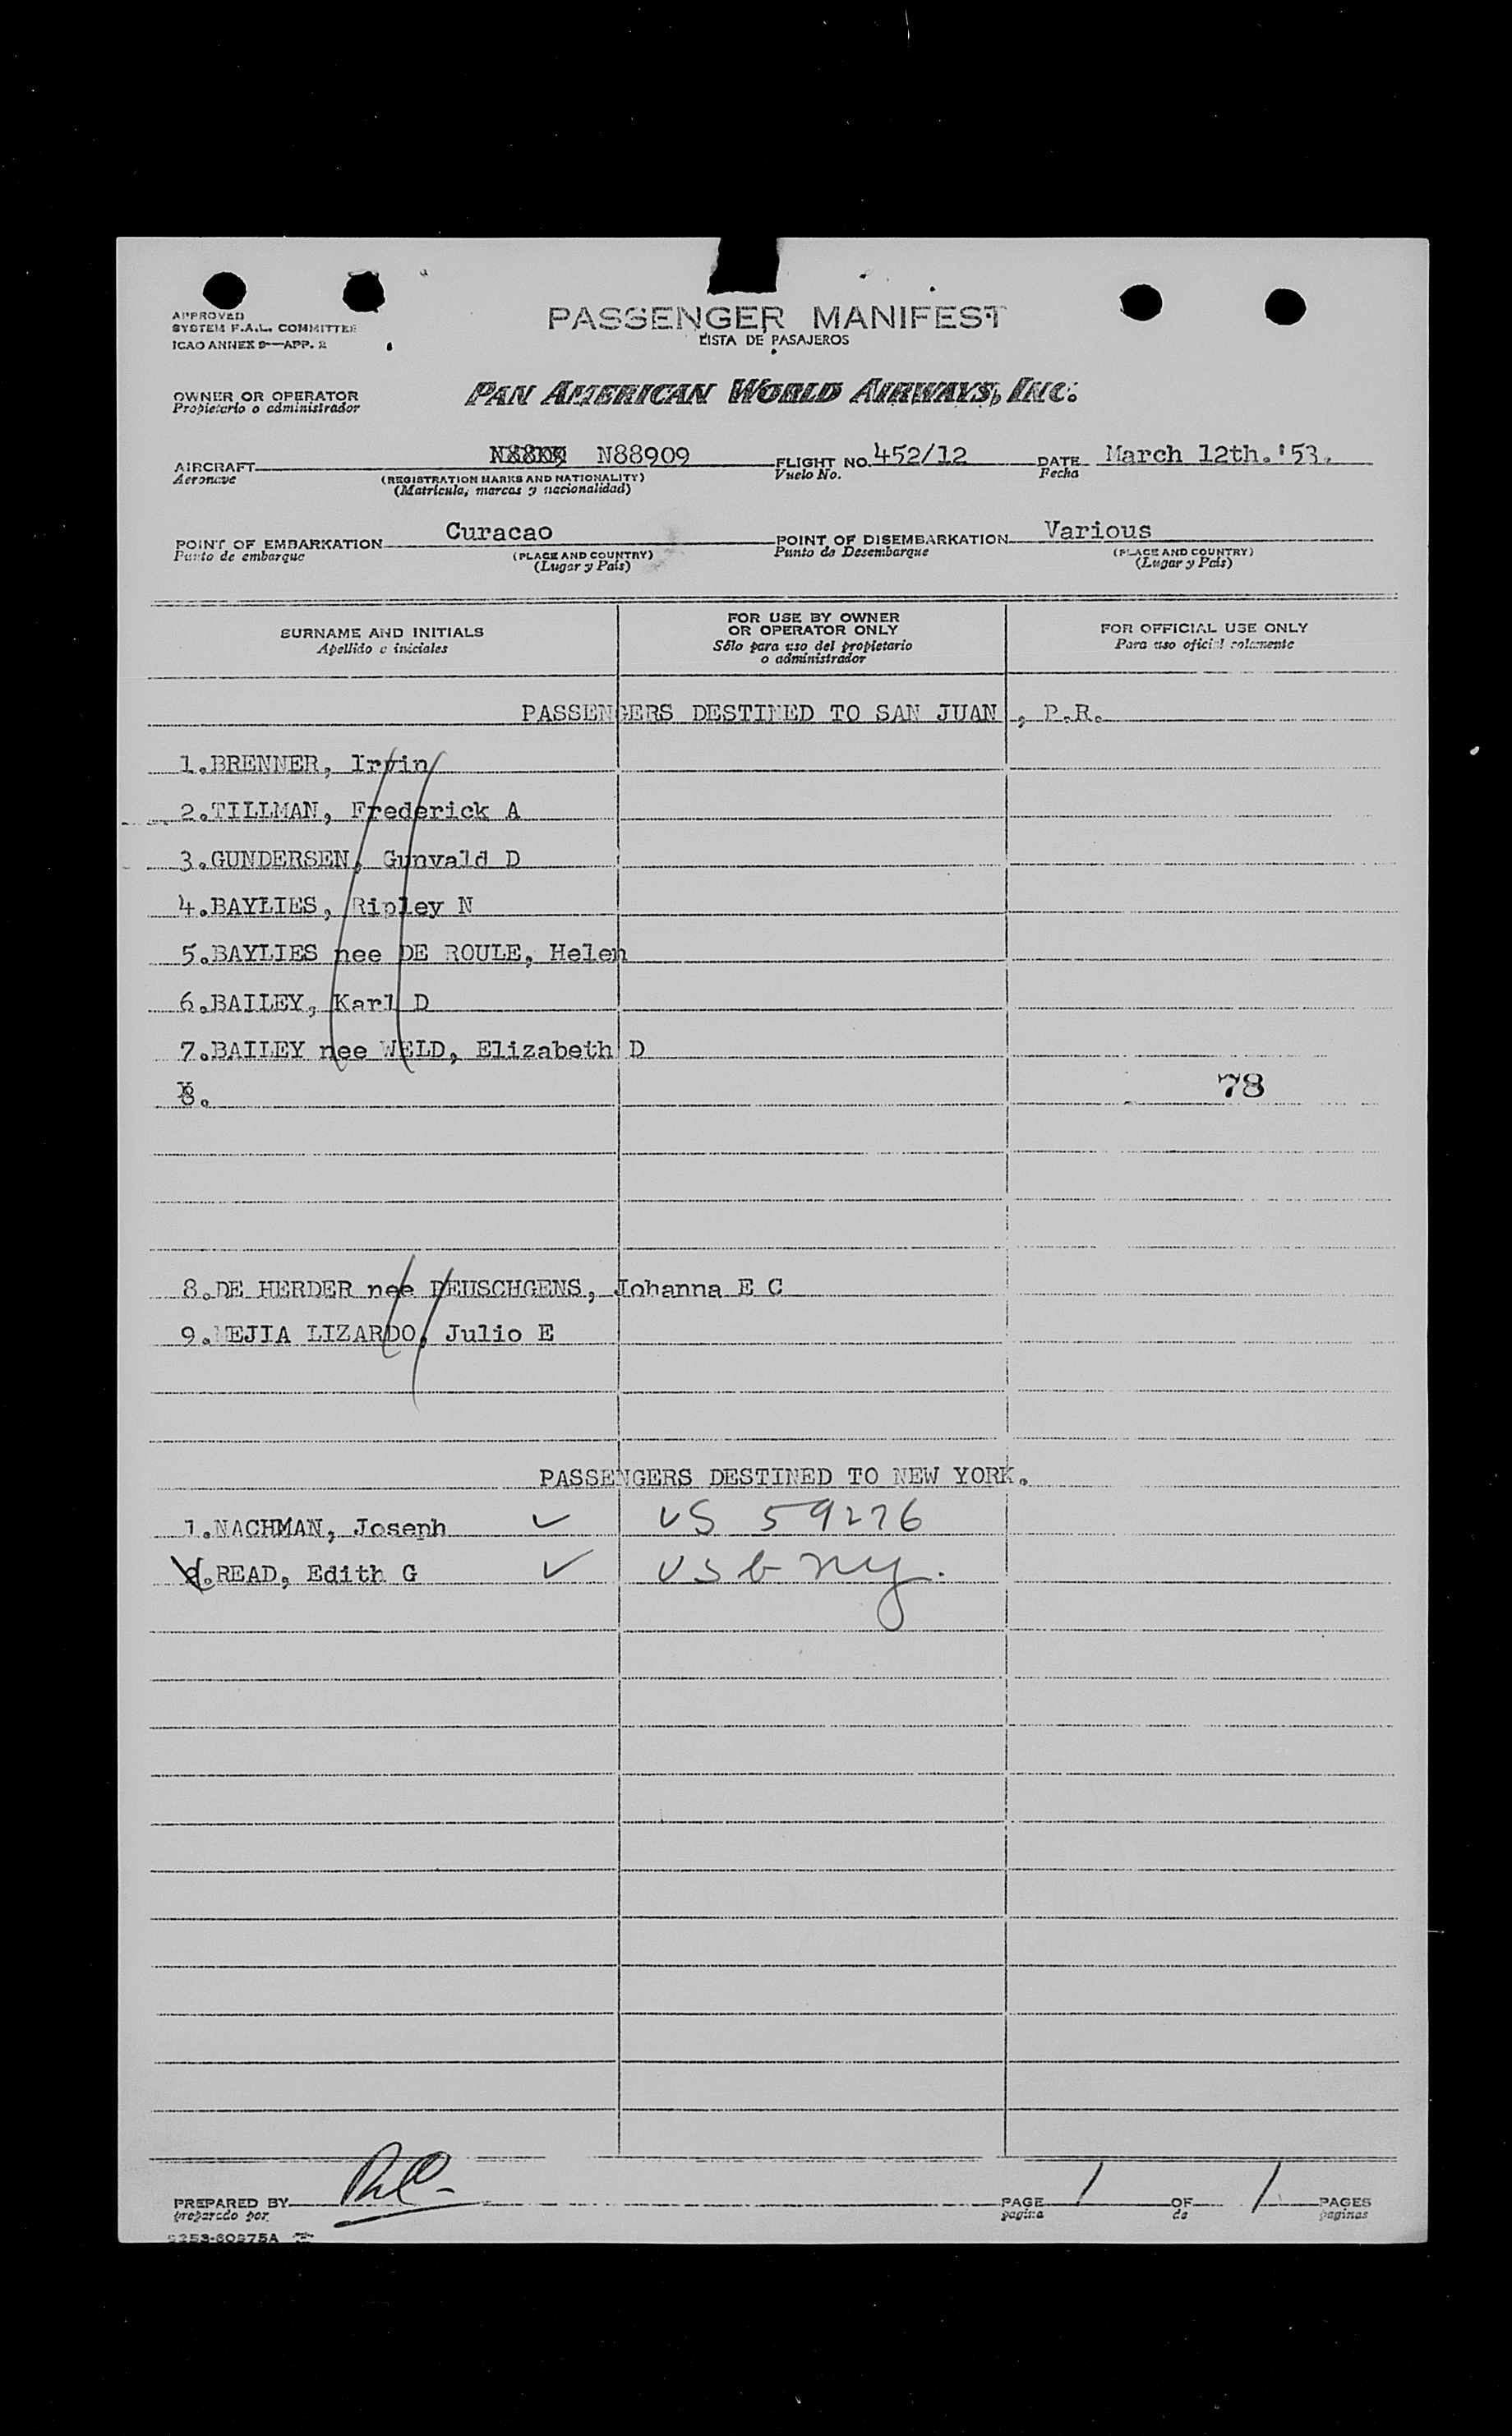 APPROVED
SYSTEM F.A.L. COMMITTEE
ICAO ANNEX 9—APP. 2
PASSENGER MANIFEST
LISTA DE PASAJEROS
OWNER OR OPERATOR
Propietario o administrador
PAN AMERICAN WORLD AIRWAYS, INC.
AIRCRAFT N88909 FLIGHT NO. 452/12 DATE March 12th.'53.
Aeronave Vuelo No. Fecha
(REGISTRATION MARKS AND NATIONALITY)
(Matrícula, marcas y nacionalidad)
POINT OF EMBARKATION Curacao POINT OF DISEMBARKATION Various
Punto de embarque Punto de Desembarque
(PLACE AND COUNTRY) (PLACE AND COUNTRY)
(Lugar y País) (Lugar y País)
SURNAME AND INITIALS
Apellido e iniciales
FOR USE BY OWNER
OR OPERATOR ONLY
Sólo para uso del propietario
o administrador
FOR OFFICIAL USE ONLY
Para uso oficial solamente
PASSENGERS DESTINED TO SAN JUAN, P.R.
1.BRENNER, Irvin
2.TILLMAN, Frederick A
3.GUNDERSEN, Gunvald D
4.BAYLIES, Ripley N
5.BAYLIES nee DE ROULE, Helen
6.BAILEY, Karl D
7.BAILEY nee WELD, Elizabeth D
8.
78
8.DE HERDER nee DEUSCHGENS, Johanna E C
9.MEJIA LIZARDO, Julio E
PASSENGERS DESTINED TO NEW YORK.
1.NACHMAN, Joseph ✓ US 59276
2.READ, Edith G ✓ US b ny.
PREPARED BY PAGE 1 OF 1 PAGES
preparado por pagina de paginas